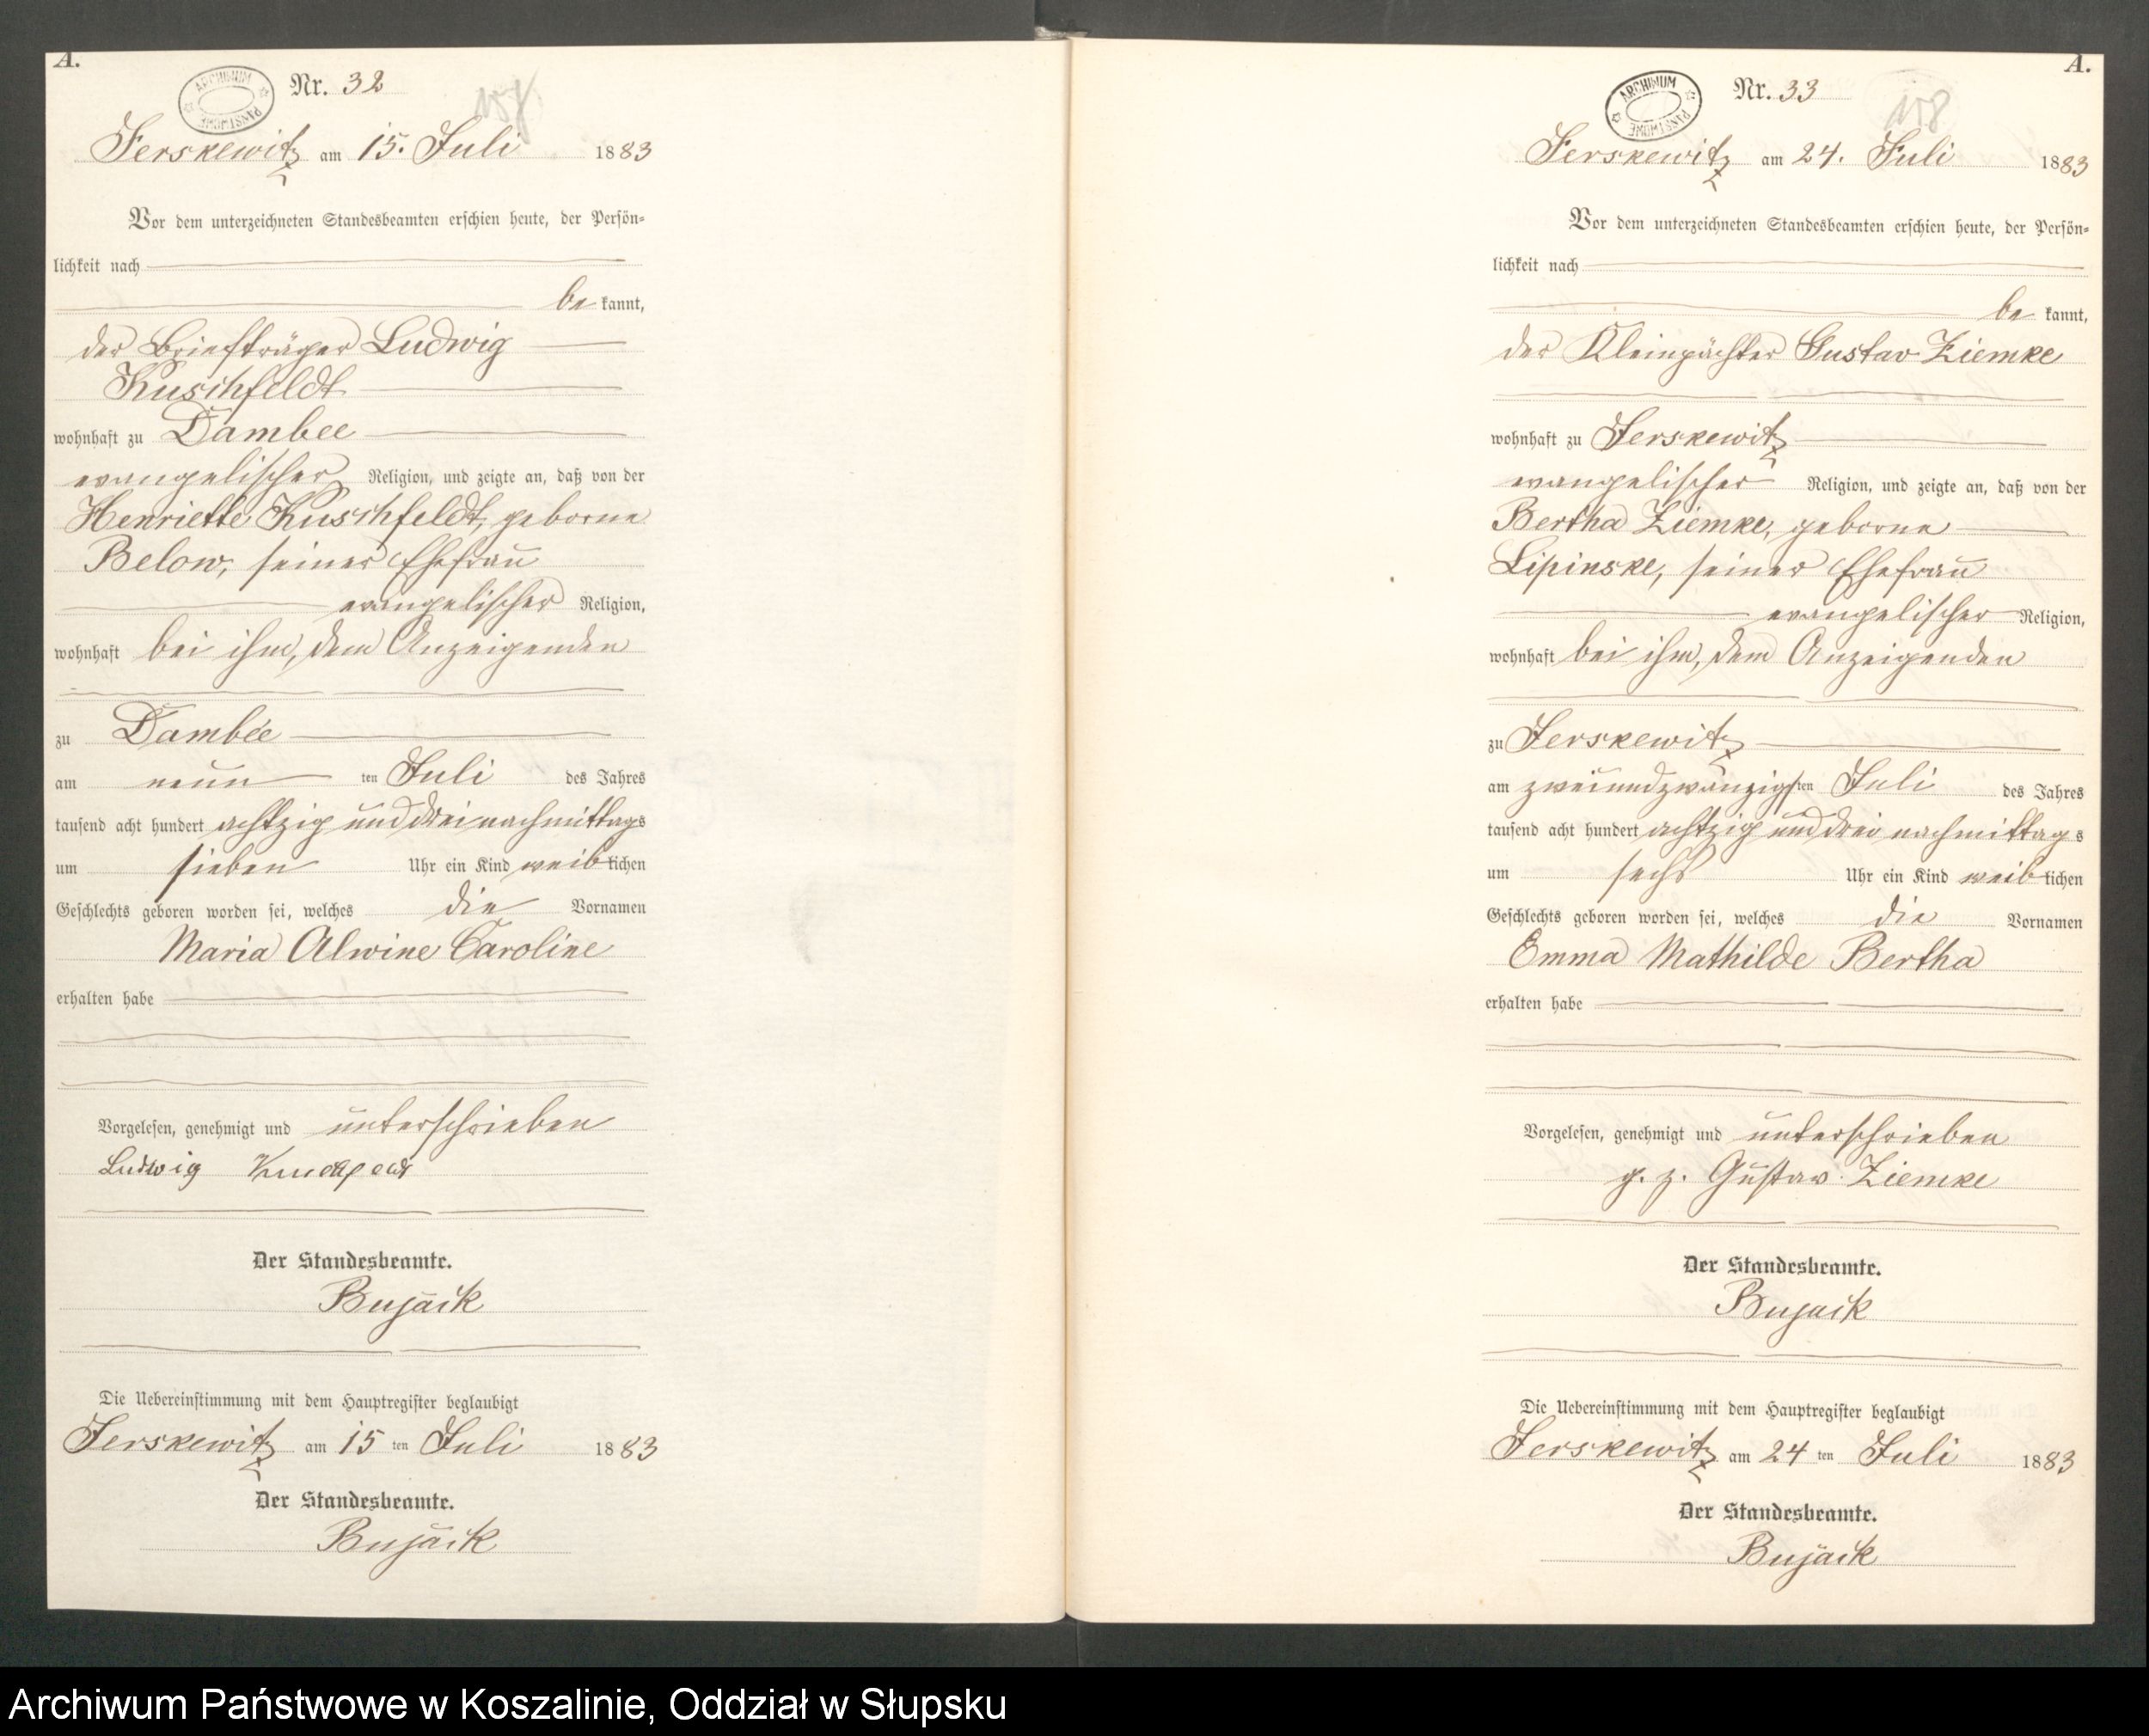 A.
ARCHIWUM PAŃSTWOWE
Nr. 32
Jerskewitz am 15. Juli 1883
Vor dem unterzeichneten Standesbeamten erschien heute, der Persön-
lichkeit nach
be kannt,
der Briefträger Ludwig
Kuschfeldt
wohnhaft zu Dambee
evangelischer Religion, und zeigte an, daß von der
Henriette Kuschfeldt, geborne
Below, seiner Ehefrau
evangelischer Religion,
wohnhaft bei ihm, dem Anzeigenden
zu Dambee
am neun ten Juli des Jahres
tausend acht hundert achtzig und drei nachmittags
um sieben Uhr ein Kind weiblichen
Geschlechts geboren worden sei, welches die Vornamen
Maria Alwine Caroline
erhalten habe
Vorgelesen, genehmigt und unterschrieben
Ludwig
Der Standesbeamte.
Bujack
Die Uebereinstimmung mit dem Hauptregister beglaubigt
Jerskewitz am 15 ten Juli 1883
Der Standesbeamte.
Bujack
A.
ARCHIWUM PAŃSTWOWE
Nr. 33
158
Jerskewitz am 24. Juli 1883
Vor dem unterzeichneten Standesbeamten erschien heute, der Persön-
lichkeit nach
be kannt,
der Kleinpächter Gustav Ziemke
wohnhaft zu Jerskewitz
evangelischer Religion, und zeigte an, daß von der
Bertha Ziemke, geborne
Lipinske, seiner Ehefrau
evangelischer Religion,
wohnhaft bei ihm, dem Anzeigenden
zu Jerskewitz
am zweiundzwanzigsten Juli des Jahres
tausend acht hundert achtzig und drei nachmittags
um sechs Uhr ein Kind weiblichen
Geschlechts geboren worden sei, welches die Vornamen
Emma Mathilde Bertha
erhalten habe
Vorgelesen, genehmigt und unterschrieben
g. z. Gustav Ziemke
Der Standesbeamte.
Bujack
Die Uebereinstimmung mit dem Hauptregister beglaubigt
Jerskewitz am 24 ten Juli 1883
Der Standesbeamte.
Bujack
Archiwum Państwowe w Koszalinie, Oddział w Słupsku